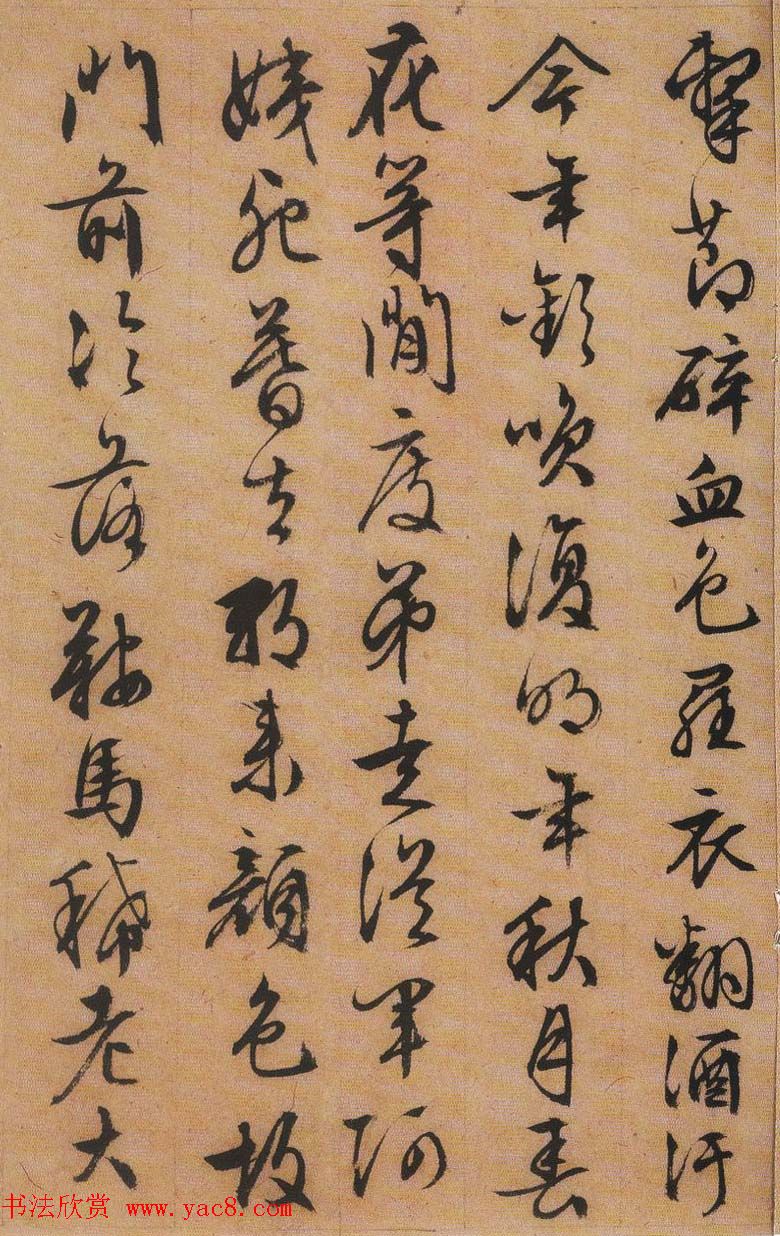 擊節碎血色羅衣翻酒汙
今年歡喚復明年秋月春
花等閒度弟走從軍阿
姨死暮去朝來顏色故
門前冷落鞍馬稀老大
书法欣赏 www.yac8.com